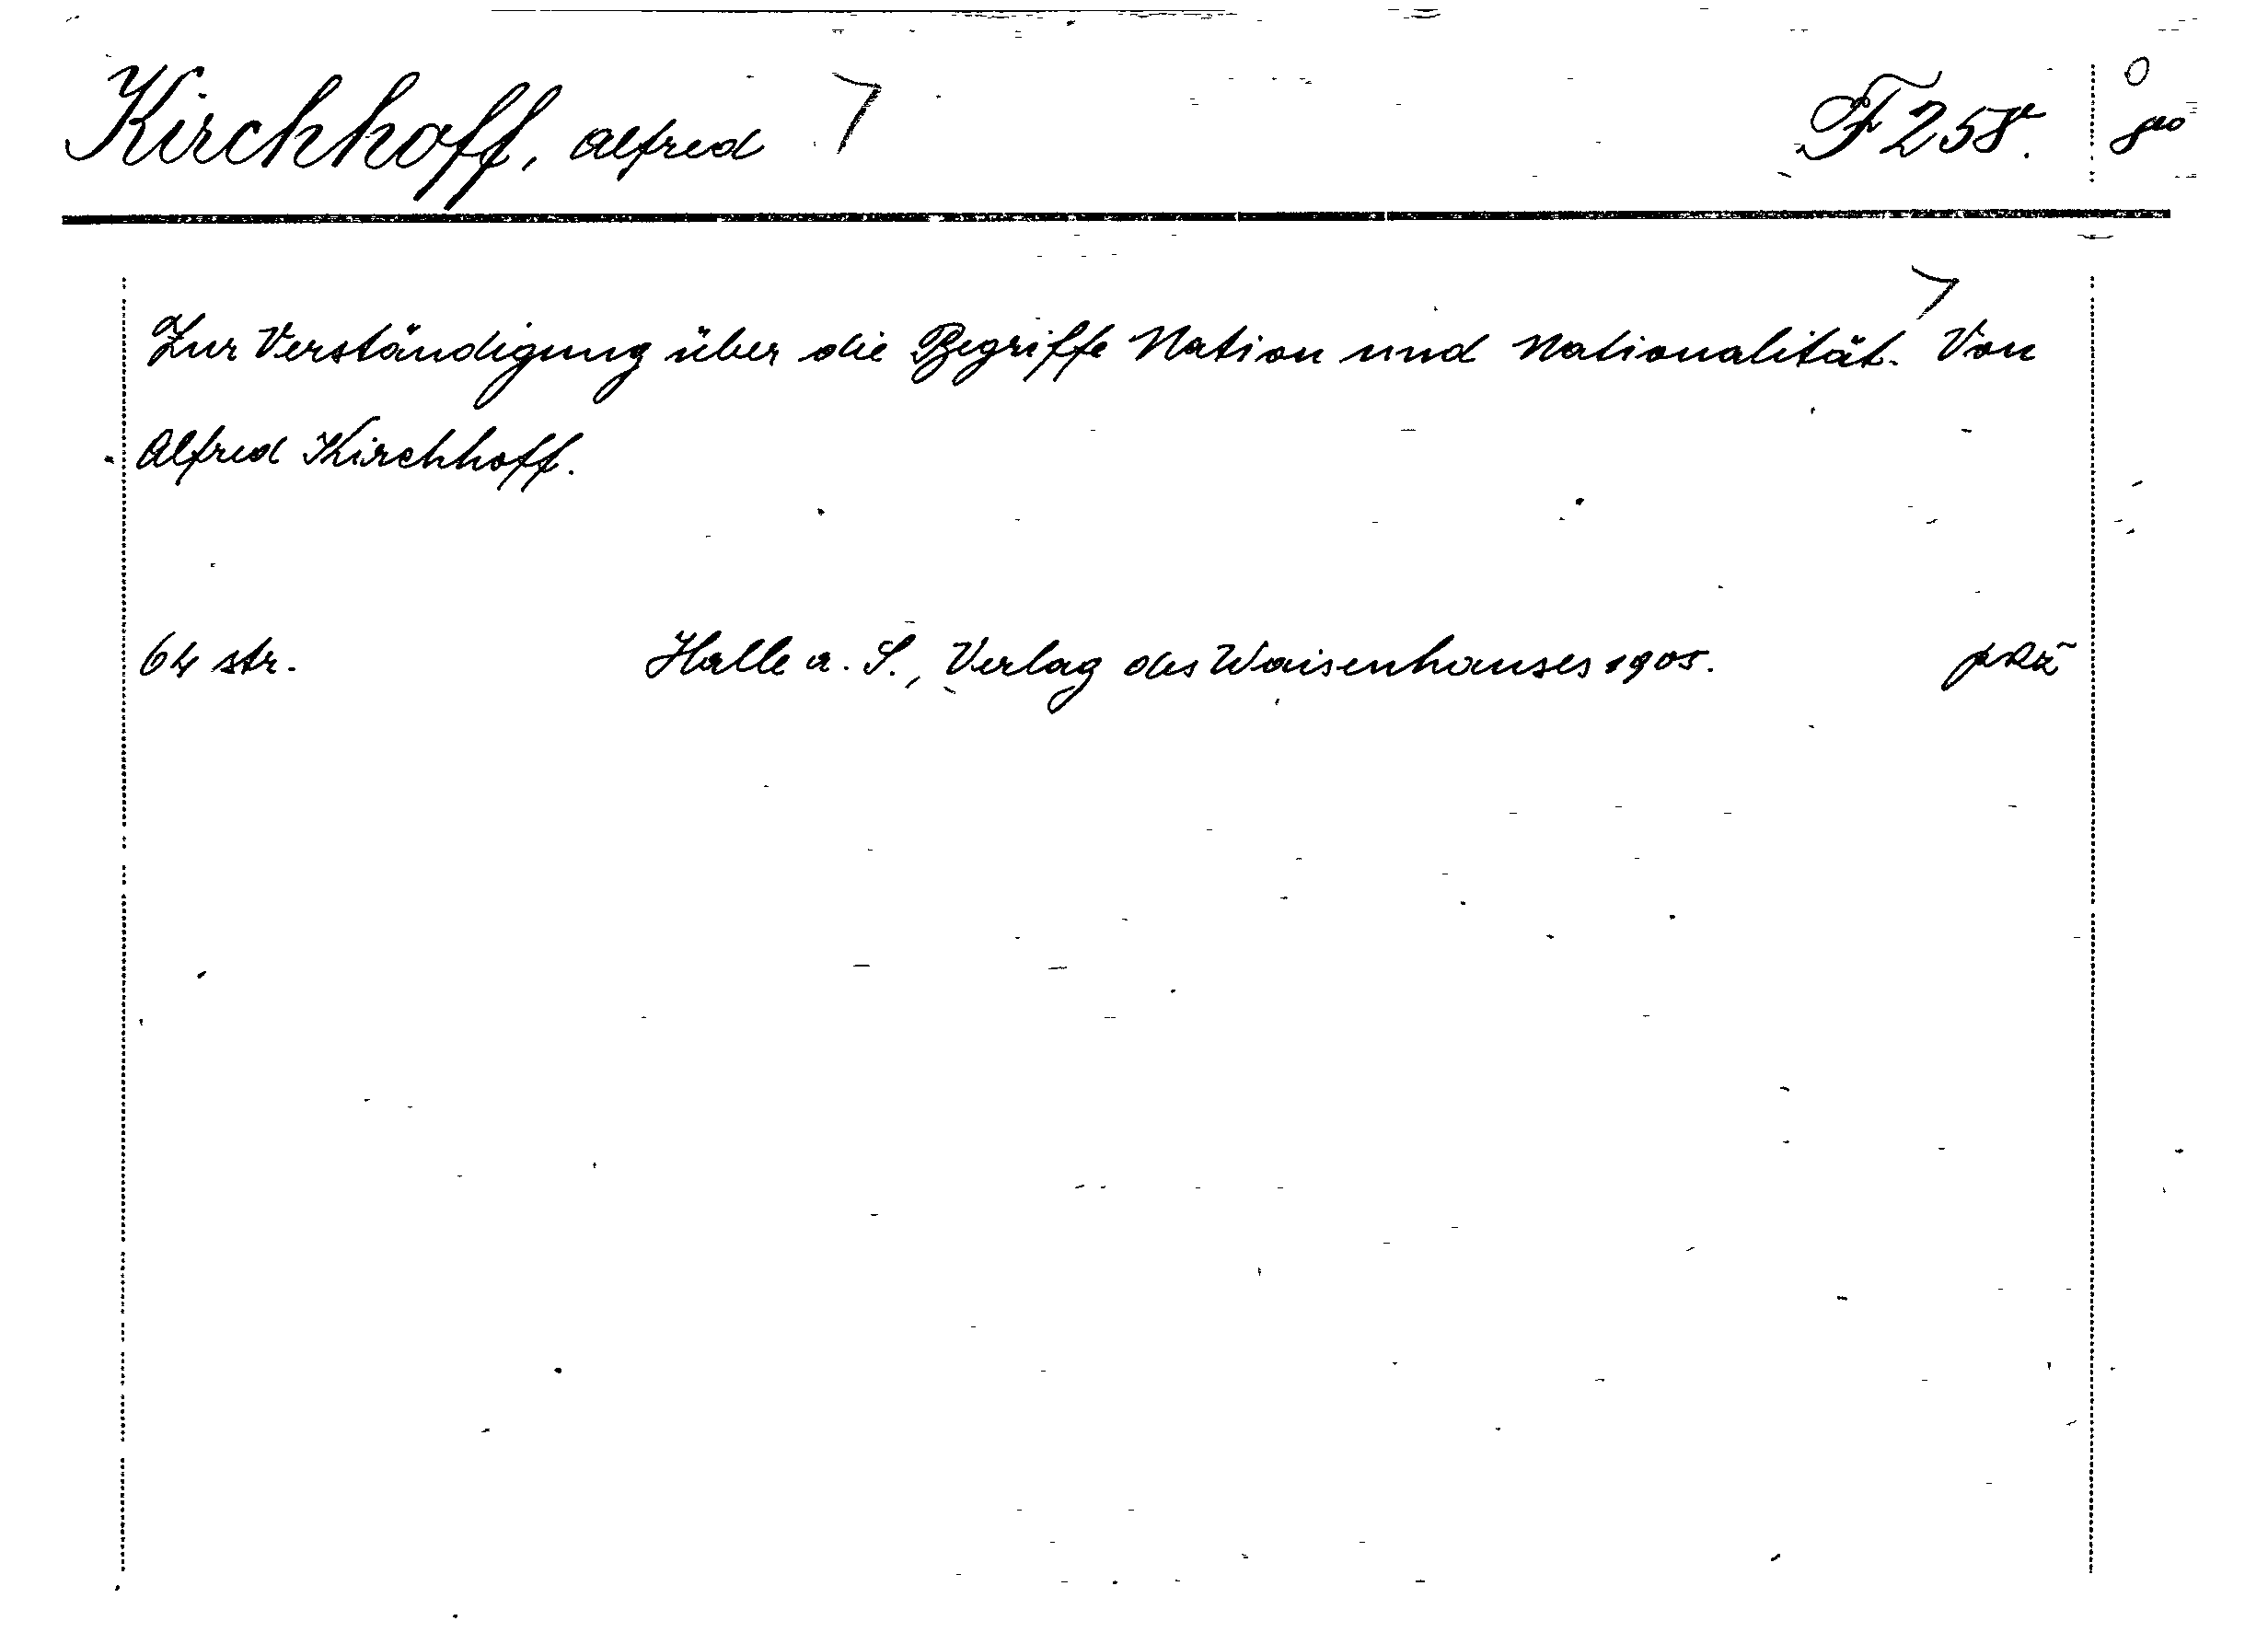 Kirchhoff, Alfred F 258. 8vo
Zur Verständigung über die Begriffe Nation und Nationalität. Von
Alfred Kirchhoff.
64 str. Halle a. S., Verlag des Waisenhauses 1905.